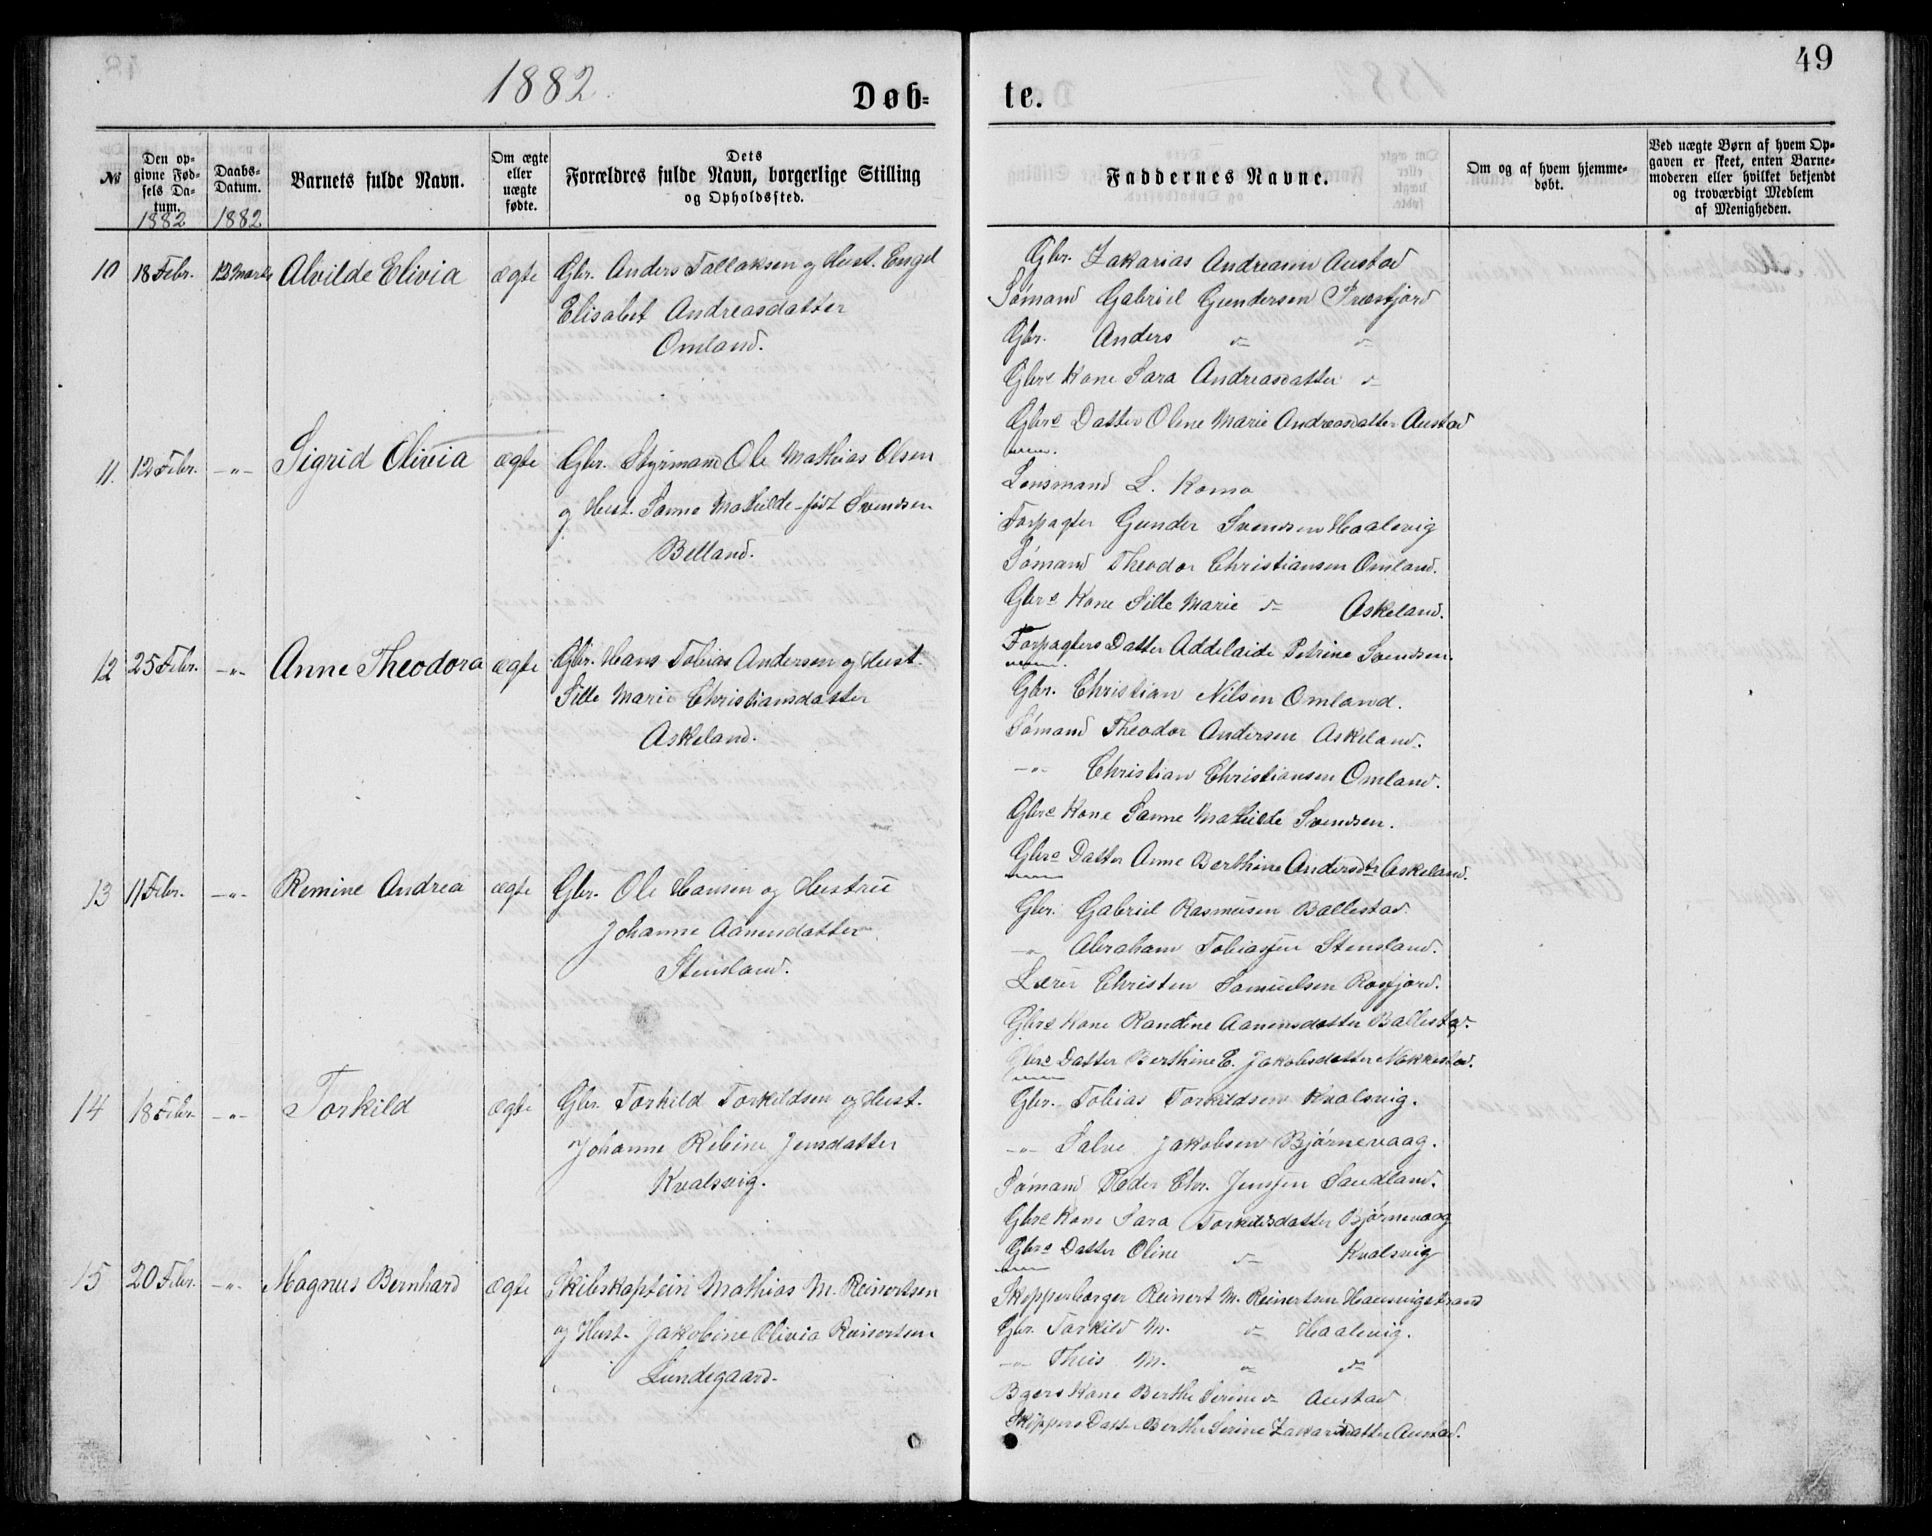 49
1882.
Døb-
te.
№
Den op-
givne Fød-
sels Da-
tum.
1882
Daabs-
Datum.
1882
Barnets fulde Navn.
Om ægte
eller
uægte
fødte.
Dets
Forældres fulde Navn, borgerlige Stilling
og Opholdssted.
Faddernes Navne.
Om og af hvem hjemme-
døbt.
Ved uægte Børn af hvem Op-
gaven er skeet, enten Barne-
moderen eller hvilket bekjendt
og troværdigt Medlem
af Menigheden.
10 18 Febr. 12 Marts Alvilde Elivia ægte Gbr. Anders Tallaksen og Hust. Engel
Elisabet Andreasdatter
Omland.
Gbr. Zakarias Austad
Sømand Gabriel Gundersen Præstfjord
Gbr. Anders " "
Gbrs Kone Sara Andreasdatter "
Gbrs Datter Olene Marie Andreasdatter Austad
11. 12 Febr. -"- Sigrid Olivia ægte Gbr. Styrmand Ole Mathias Olsen
og Hust. Sanne Mathilde født Svendsen
Belland.
Lensmand L. Komo
Forpagter Gunder Svendsen Haalevig
Sømand Theodor Christiansen Omland.
Gbrs Kone Sille Marie do Askeland.
Forpagters Datter Addelaide Petrine Svendsen.
12 25 Febr. -"- Anne Theodora ægte Gbr. Hans Tobias Andersen og Hust.
Sille Marie Christiansdatter
Askeland.
Gbr. Christian Nilsen Omland.
Sømand Theodor Andersen Askeland.
-"- Christian Christiansen Omland.
Gbrs Kone Sanne Mathilde Svendsen.
Gbrs Datter Anne Berthine Andersdtr Askeland.
13 11 Febr. -"- Remine Andrea ægte Gbr. Ole Hansen og Hustru
Johanne Aanensdatter
Stensland.
Gbr. Gabriel Rasmusen Ballestad.
-"- Abraham Tobiassen Stensland.
Lærer Christen Samuelsen Rosfjord.
Gbrs Kone Randine Aanensdatter Ballestad.
Gbrs Datter Berthine E. Jakobsdatter Nakkestad.
14 18 Febr. -"- Torkild ægte Gbr. Torkild Torkildsen og Hust.
Johanne Ribine Jensdatter
Kvalsvig.
Gbr. Tobias Torkildsen Kvalsvig.
-"- Salve Jakobsen Bjørnevaag.
Sømand Peder Chr. Jenssen Sandland.
Gbrs Kone Sara Torkildsdatter Bjørnevaag
Gbrs Datter Oline do Kvalsvig
15 20 Febr. -"- Magnus Bernhard ægte Skibskaptein Mathias M. Reinertsen
og Hust. Jakobine Olivia Reinertsen
Lundegaard.
Skipperborger Reinert M. Reinertsen
Gbr. Torkild M. do Haalevig.
-"- Theis M. " do
Kone Berthe Serine do Austad
Skippers Datter Berthe Serine Zakariasdatter Austad.